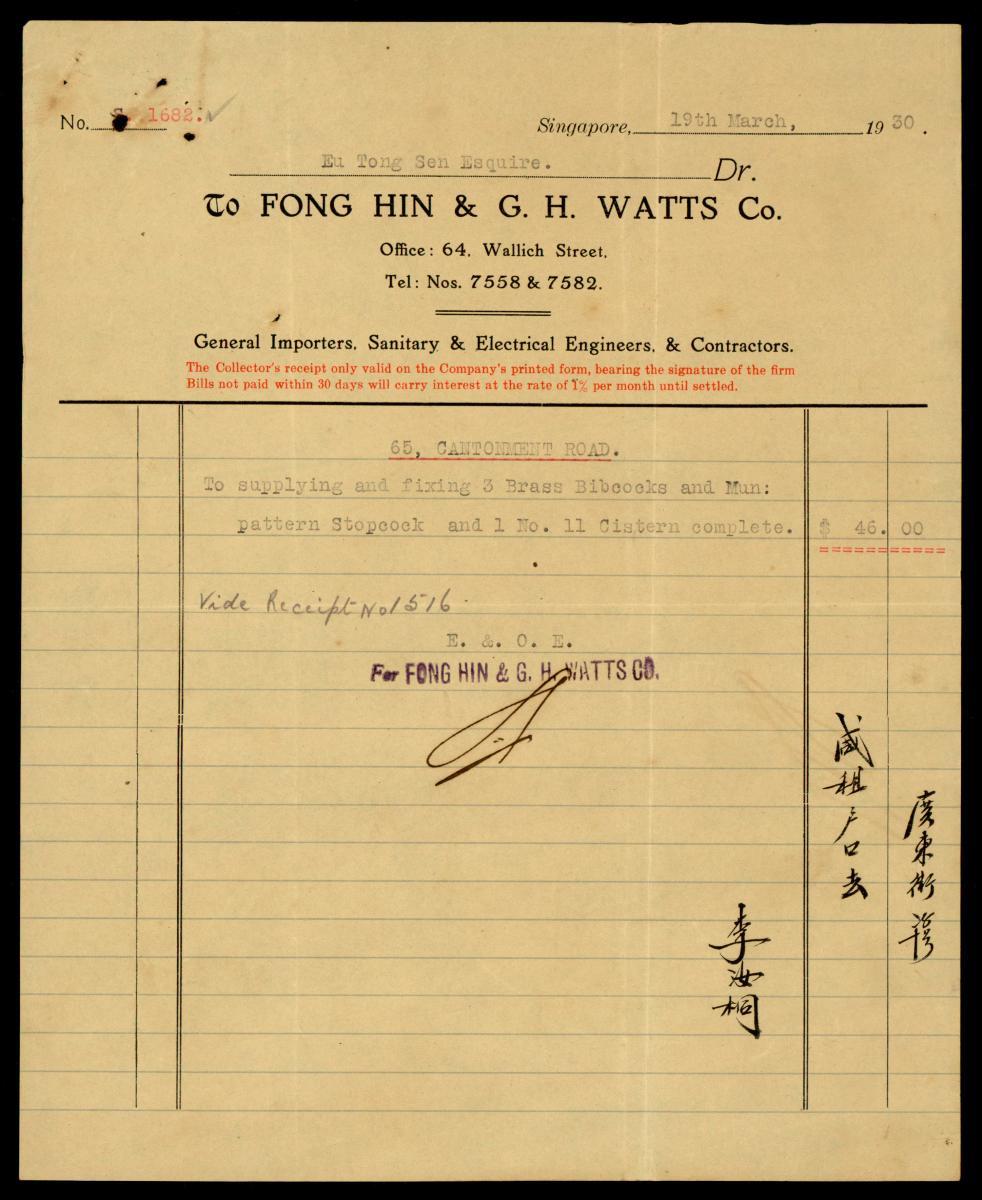 No. S. 1682.
Singapore, 19th March, 1930.
Eu Tong Sen Esquire. Dr.
To FONG HIN & G. H. WATTS Co.
Office: 64, Wallich Street,
Tel: Nos. 7558 & 7582.
General Importers, Sanitary & Electrical Engineers, & Contractors.
The Collector's receipt only valid on the Company's printed form, bearing the signature of the firm
Bills not paid within 30 days will carry interest at the rate of 1% per month until settled.
65, CANTONMENT ROAD.
To supplying and fixing 3 Brass Bibcocks and Mun:
pattern Stopcock and 1 No. 11 Cistern complete. $ 46. 00
Vide Receipt No 1516
E. &. O. E.
For FONG HIN & G. H. WATTS CO.
廣東街
租戶口去
李汝桐